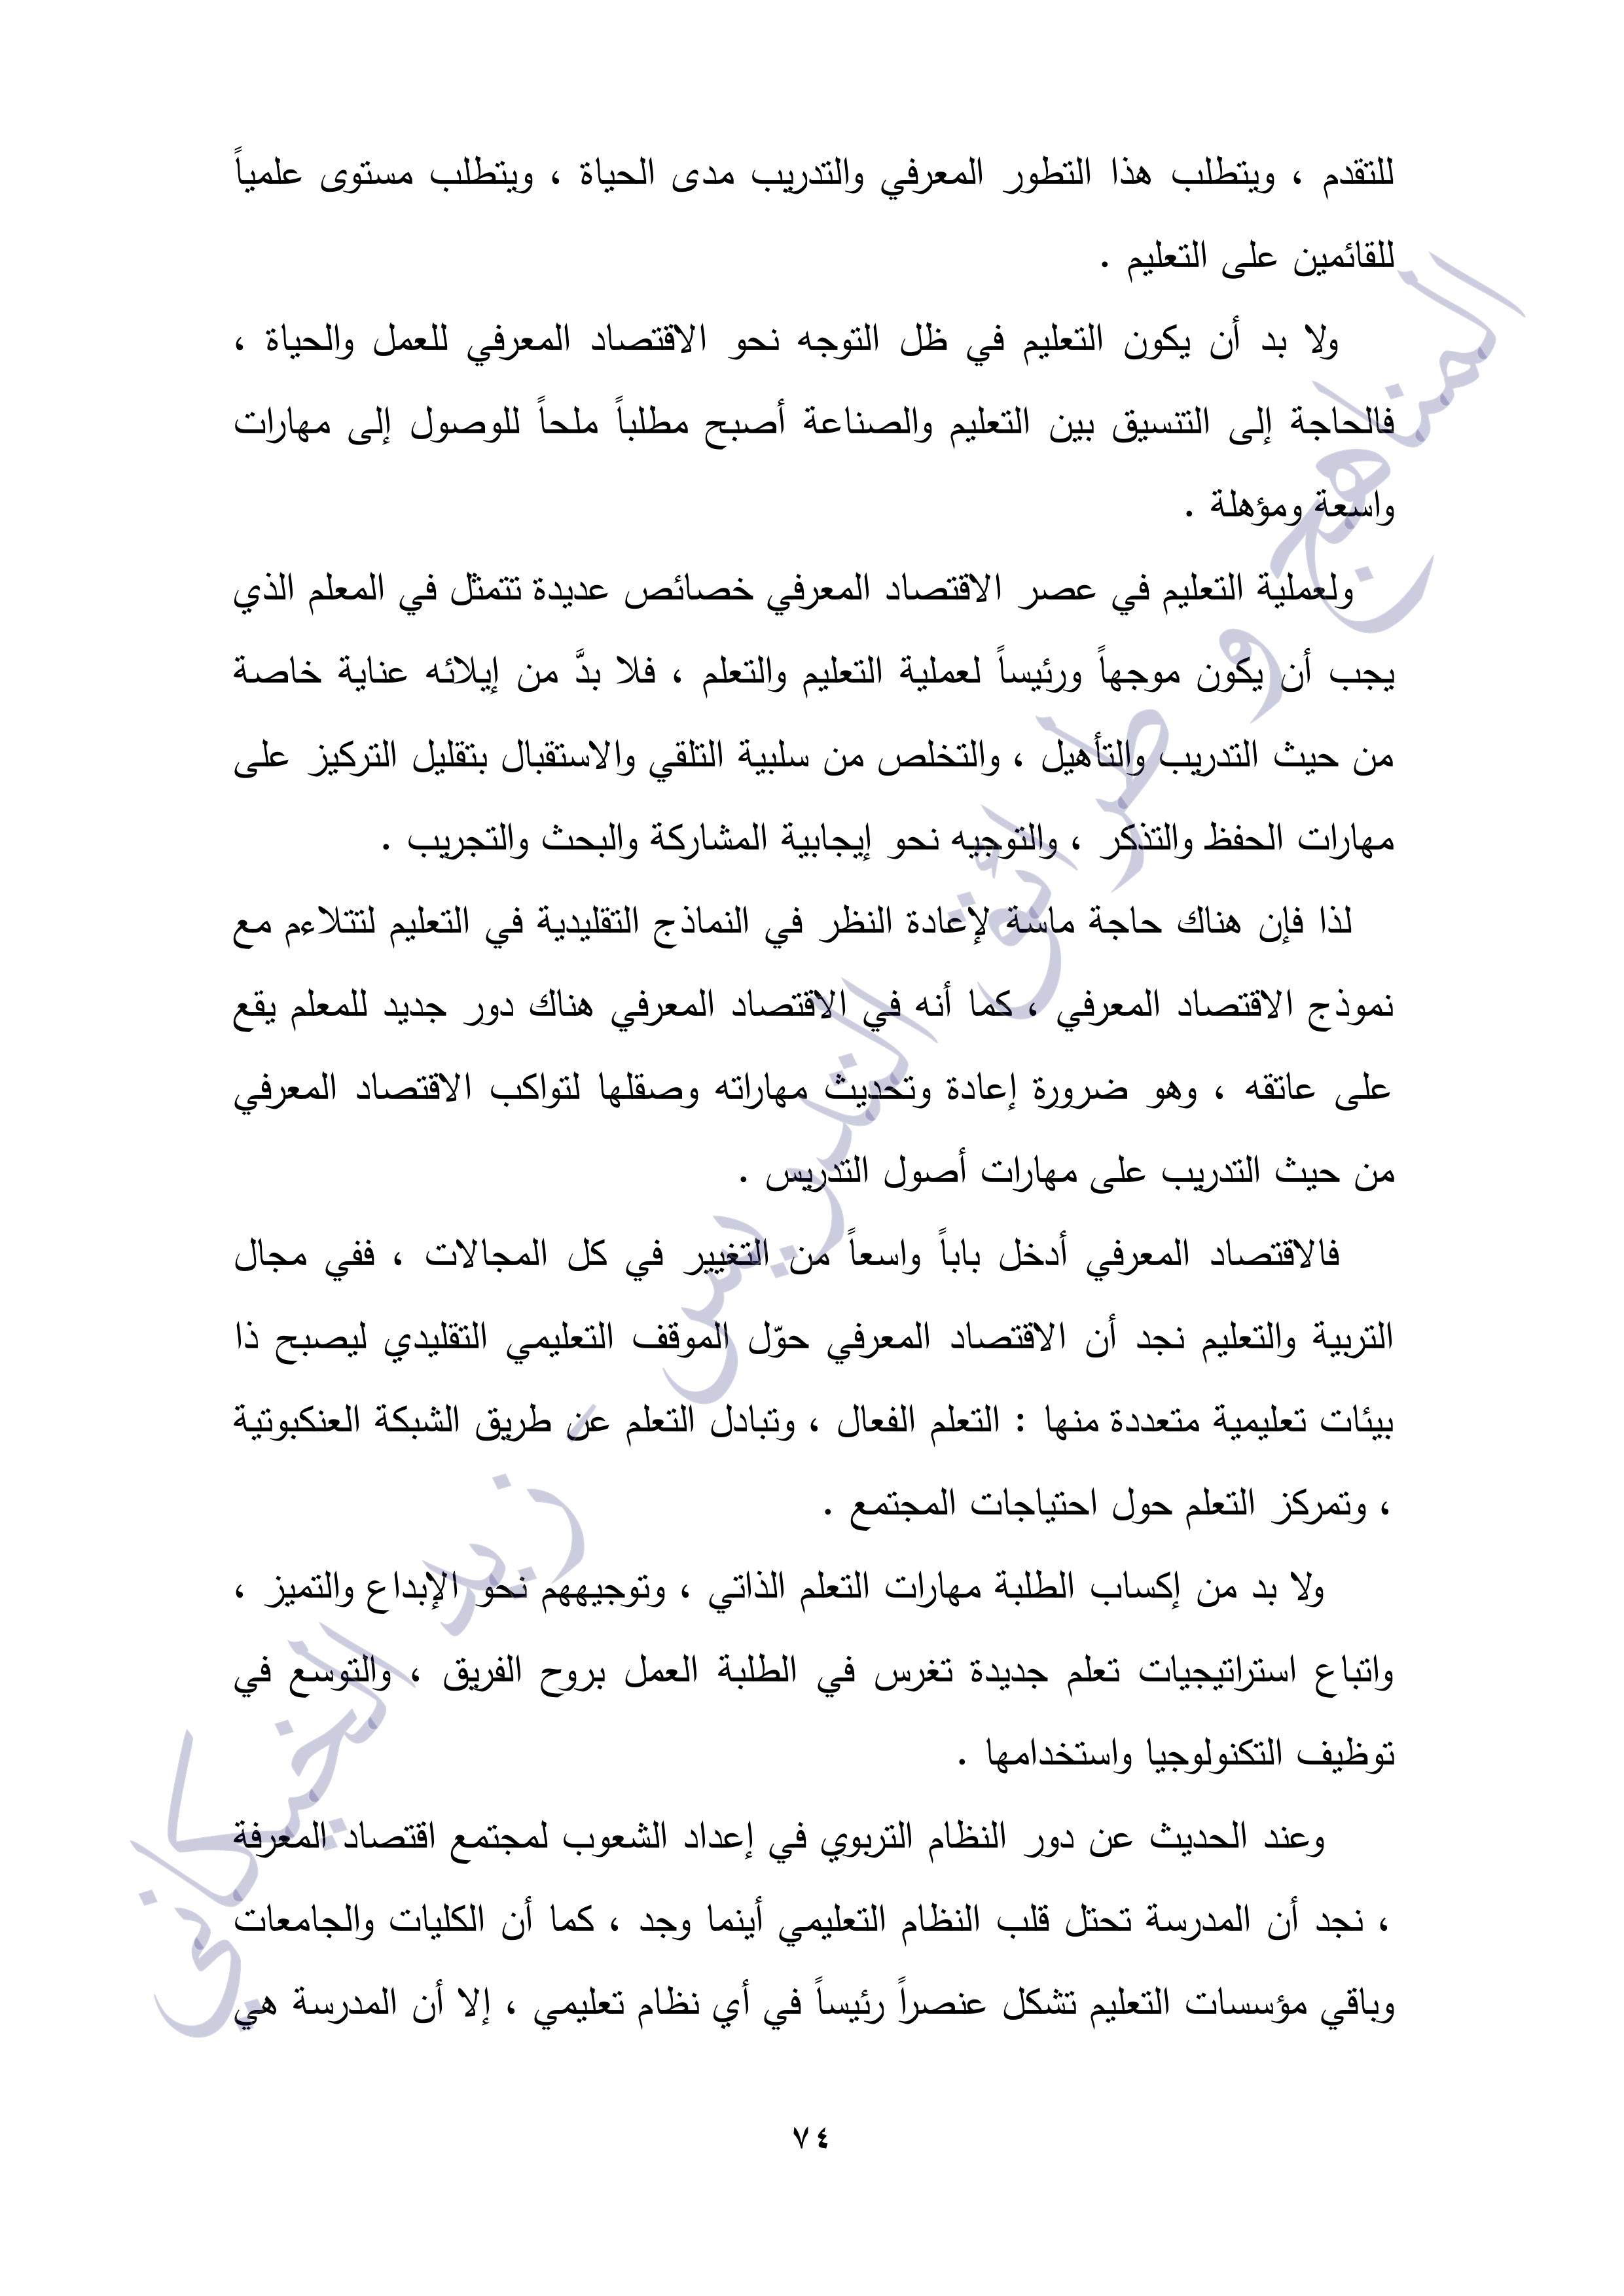 للتقدم ، ويتطلب هذا التطور المعرفي والتدريب مدى الحياة ، ويتطلب مستوى علمياً
للقائمين على التعليم .
ولا بد أن يكون التعليم في ظل التوجه نحو الاقتصاد المعرفي للعمل والحياة ،
فالحاجة إلى التنسيق بين التعليم والصناعة أصبح مطلباً ملحاً للوصول إلى مهارات
واسعة ومؤهلة .
ولعملية التعليم في عصر الاقتصاد المعرفي خصائص عديدة تتمثل في المعلم الذي
يجب أن يكون موجهاً ورئيساً لعملية التعليم والتعلم ، فلا بدَّ من إيلائه عناية خاصة
من حيث التدريب والتأهيل ، والتخلص من سلبية التلقي والاستقبال بتقليل التركيز على
مهارات الحفظ والتذكر ، والتوجيه نحو إيجابية المشاركة والبحث والتجريب .
لذا فإن هناك حاجة ماسة لإعادة النظر في النماذج التقليدية في التعليم لتتلاءم مع
نموذج الاقتصاد المعرفي ، كما أنه في الاقتصاد المعرفي هناك دور جديد للمعلم يقع
على عاتقه ، وهو ضرورة إعادة وتحديث مهاراته وصقلها لتواكب الاقتصاد المعرفي
من حيث التدريب على مهارات أصول التدريس .
فالاقتصاد المعرفي أدخل باباً واسعاً من التغيير في كل المجالات ، ففي مجال
التربية والتعليم نجد أن الاقتصاد المعرفي حوّل الموقف التعليمي التقليدي ليصبح ذا
بيئات تعليمية متعددة منها : التعلم الفعال ، وتبادل التعلم عن طريق الشبكة العنكبوتية
، وتمركز التعلم حول احتياجات المجتمع .
ولا بد من إكساب الطلبة مهارات التعلم الذاتي ، وتوجيههم نحو الإبداع والتميز ،
واتباع استراتيجيات تعلم جديدة تغرس في الطلبة العمل بروح الفريق ، والتوسع في
توظيف التكنولوجيا واستخدامها .
وعند الحديث عن دور النظام التربوي في إعداد الشعوب لمجتمع اقتصاد المعرفة
، نجد أن المدرسة تحتل قلب النظام التعليمي أينما وجد ، كما أن الكليات والجامعات
وباقي مؤسسات التعليم تشكل عنصراً رئيساً في أي نظام تعليمي ، إلا أن المدرسة هي
٧٤
المناهج و طرائق التدريس - زيد الخيكاني